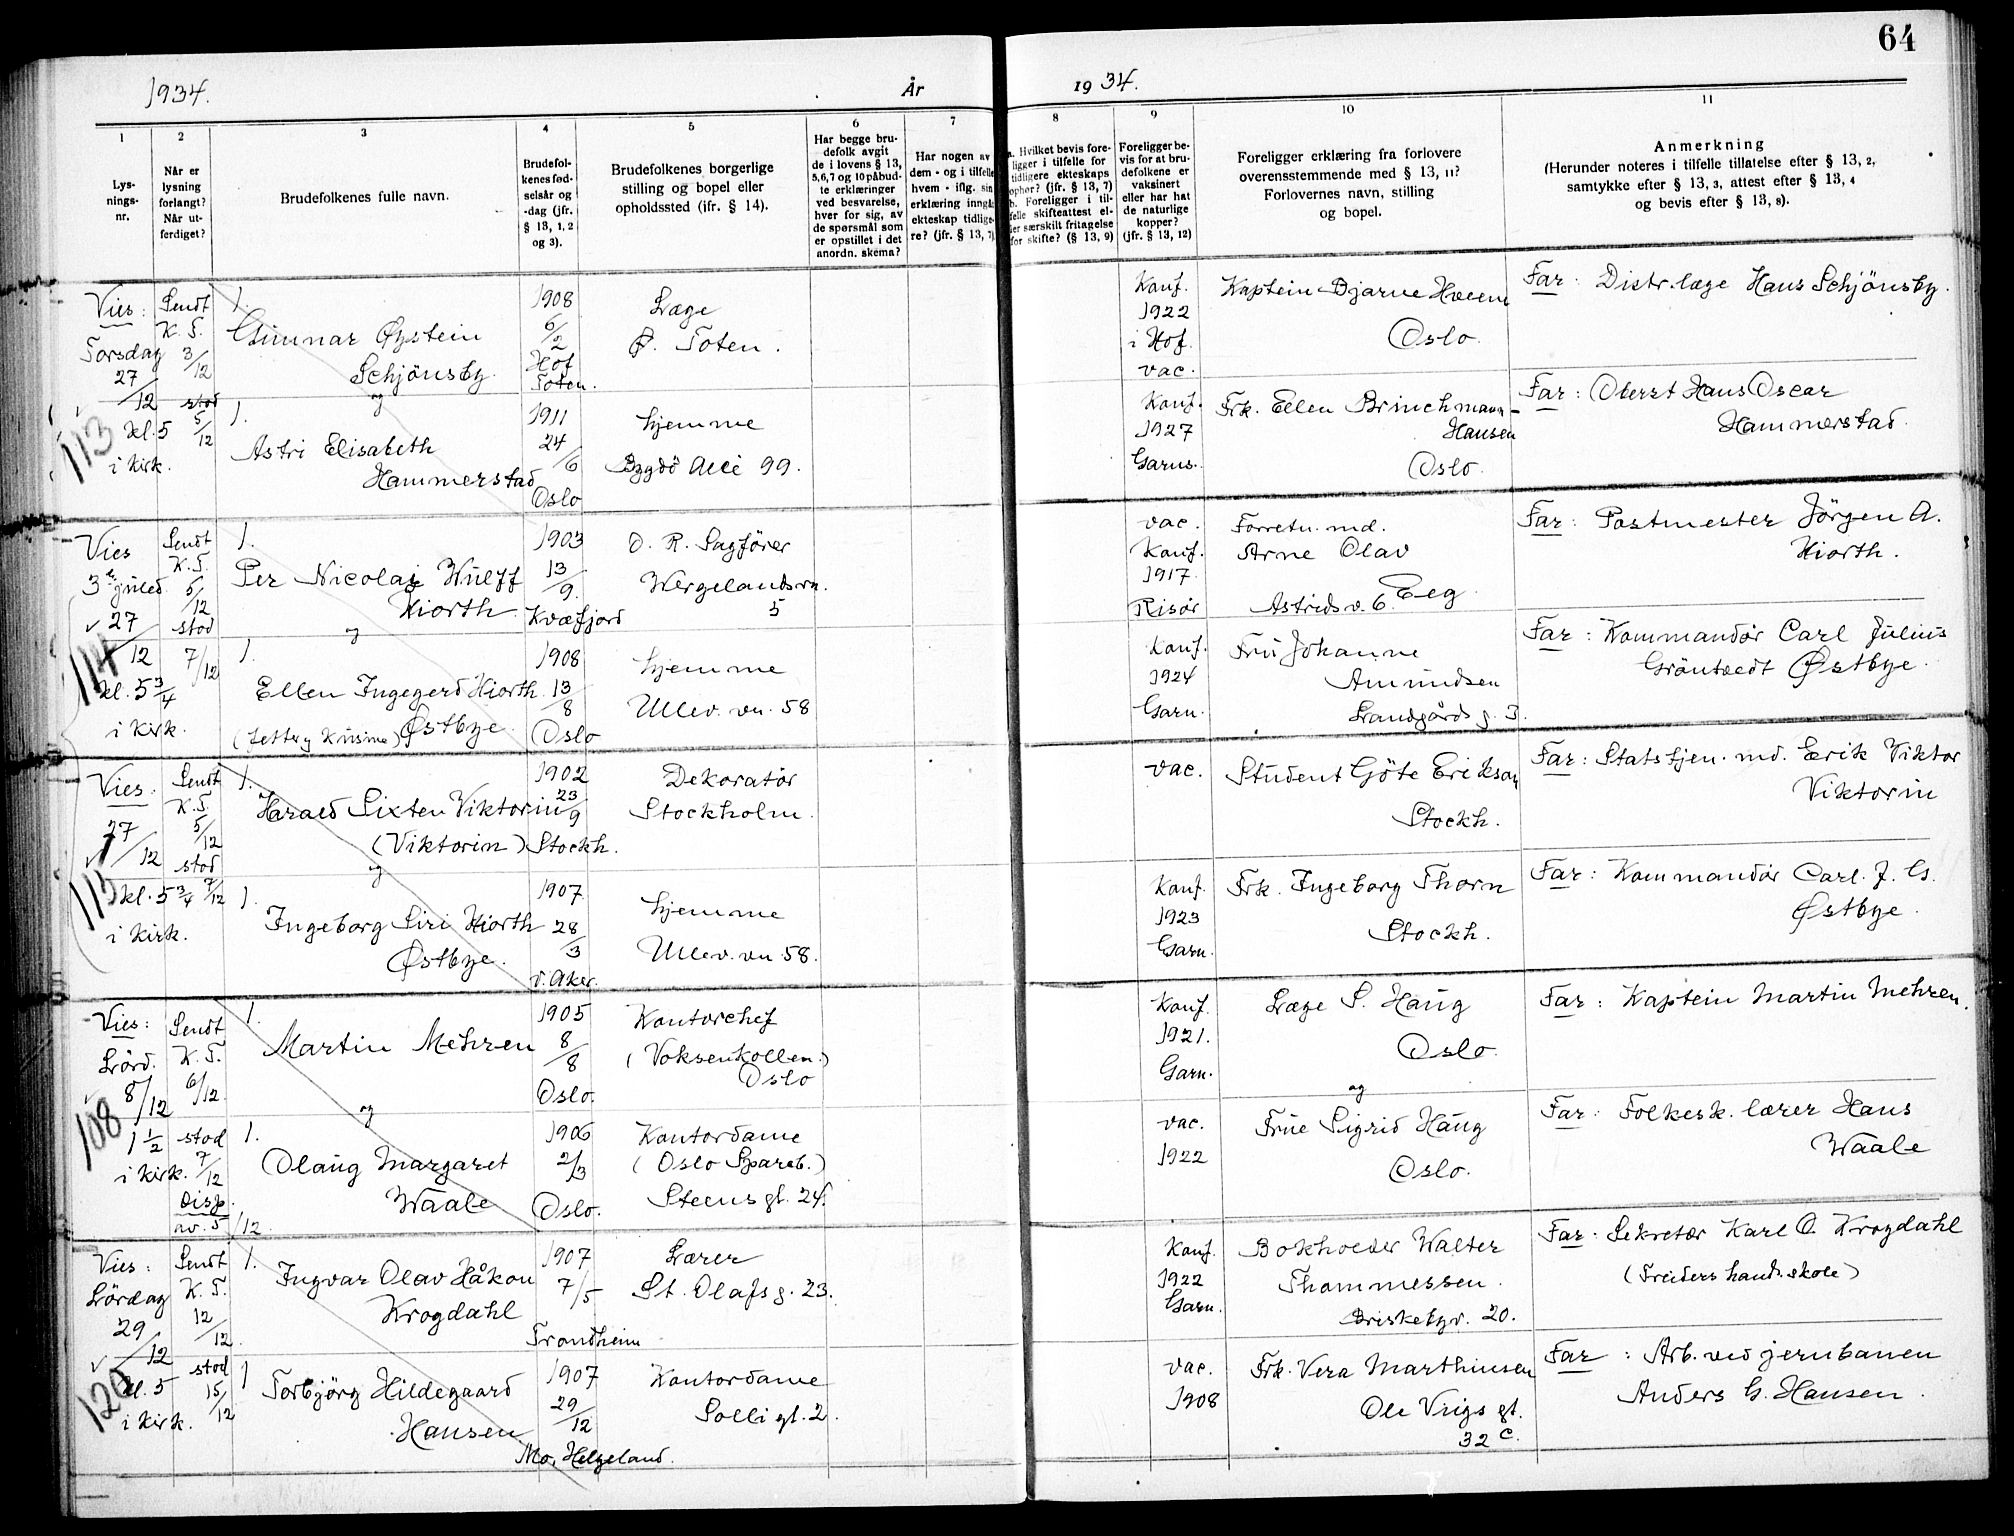 64
1934.
År
19 34.
1
2
3
4
5
6
7
8
9
10
11
Lys-
nings-
nr.
Når er
lysning
forlangt?
Når ut-
ferdiget?
Brudefolkenes fulle navn.
Brudefol-
kenes fød-
selsår og
-dag (jfr.
§ 13, 1, 2
og 3).
Brudefolkenes borgerlige
stilling og bopel eller
opholdssted (ifr. § 14).
Har begge bru-
defolk avgit
de i lovens § 13,
5,6,7 og 10 påbud-
te erklæringer
ved besvarelse,
hver for sig, av
de spørsmål som
er opstillet i det
anordn. skema?
Har nogen av
dem - og i tilfelle
hvem - iflg. sin
erklæring inngå
ekteskap tidlige-
re? (jfr. § 13, 7)
a. Hvilket bevis fore-
ligger i tilfelle for
tidligere ekteskaps
ophør? (jfr. § 13, 7)
b. Foreligger i til-
felle skifteattest el-
ler særskilt fritagelse
for skifte? (§ 13, 9)
Foreligger be-
vis for at bru-
defolkene er
vaksinert
eller har hat
de naturlige
kopper?
(jfr. § 13, 12)
Foreligger erklæring fra forlovere
overensstemmende med § 13, 11?
Forlovernes navn, stilling
og bopel.
Anmerkning
(Herunder noteres i tilfelle tillatelse efter § 13, 2,
samtykke efter § 13, 3, attest efter § 13, 4
og bevis efter § 13, 8).
113
Vies:
Torsdag
27/12
kl. 5
i kirk.
Sendt
K. T.
3/12
stod
5/12
1.
Gunnar Øystein
Schjönsby
og
1908
6/2
Hof
Toten.
Læge
Ø. Toten.
Konf.
1922
i Hof.
vac.
Kaptein Bjarne Hveem
Oslo
Far: Distr.læge Hans Schjönsby.
1.
Astri Elisabeth
Hammerstad
1911
24/6
Oslo
hjemme
Bygdö Allé 99.
Konf.
1927
Garns.
Frk. Ellen Brinchmann-
Hansen
Oslo
Far: Oberst Hans Oscar
Hammerstad.
114
Vies
3 juled.
27/12
kl. 5 3/4
i kirk.
Sendt
K. T.
5/12
stod
7/12
1.
Per Nicolai Wulff
Hiorth
og
1903
13/9.
Kvæfjord
O. R. Sagförer
Wergelandsvn.
5
vac.
Konf.
1917
Risör
Forretn. md.
Arne Olav
Eeg
Astridsv. 6.
Far: Postmester Jörgen A.
Hiorth.
1.
Ellen Ingegerd Hiorth
Østbye
(fetter og kusine)
1908
13/8
Oslo
hjemme
Ullev. vn. 58
Konf.
1924
Garn.
Fru Johanne
Amundsen
Far: Kommandör Carl Julius
Gröntvedt Østbye.
115
Vies:
27/12
kl. 5 3/4
i kirk.
Sendt
K. T.
5/12
stod
7/12
1.
Harald Sixten Viktorin
(Viktorin)
og
1902
23/9
Stockh.
Dekoratör
Stockholm.
vac.
Student Göte Erikson
Stockh.
Far: Statstjen. md. Erik Viktor
Viktorin
1.
Ingeborg Siri Hiorth
Østbye.
1907
28/3
v. Aker.
hjemme
Ullev. vn 58.
Konf.
1923
Garn.
Frk. Ingeborg Thorn
Stockh.
Far: Kommandör Carl. J. G.
Østbye.
108
Vies:
Lörd.
8/12
1 1/2
i kirk.
Sendt
K. T.
6/12
stod
7/12
Disp.
av. 5/12.
1.
Martin Mehren
og
1905
8/8
Oslo.
Kontorchef
(Voksenkollen.)
Oslo
Konf.
1921.
Garn.
Læge S. Haug
Oslo.
og
Far: Kaptein Martin Mehren.
1.
Olaug Margaret
Waale
1906
2/3
Oslo.
Kontordame
(Oslo Spareb.)
Steens gt. 24.
vac.
1922
Frue Sigrid Haug
Oslo.
Far: Folkesk. lærer Hans
Waale
120
Vies:
Lördag
29/12
kl. 5
i kirk.
Sendt
K. T.
12/12.
stod
15/12
1.
Ingvar Olav Håkon
Krogdahl
1907
7/5
Trondheim
Lærer
St. Olafs g. 23.
Konf.
1922
Garn.
Bokholder Walter
Thommessen.
Briskebyv. 20.
Far: Sekretær Karl O. Krogdahl
(Treiders hand. skole)
1
Torbjörg Hildegaard
Hansen
1907
29/12
Mo, Helgeland.
Kontordame
Solli gt. 2.
vac.
1908
Frk. Vera Marthinsen
Ole Vigs gt.
32 c.
Far: Arb. ved jernbanen
Anders G. Hansen.